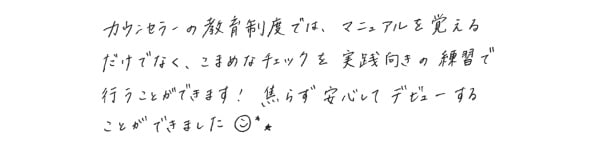 カウンセラーの教育制度では、マニュアルを覚える
だけでなく、こまめなチェックを実践向きの練習で
行うことができます！焦らず安心してデビューする
ことができました